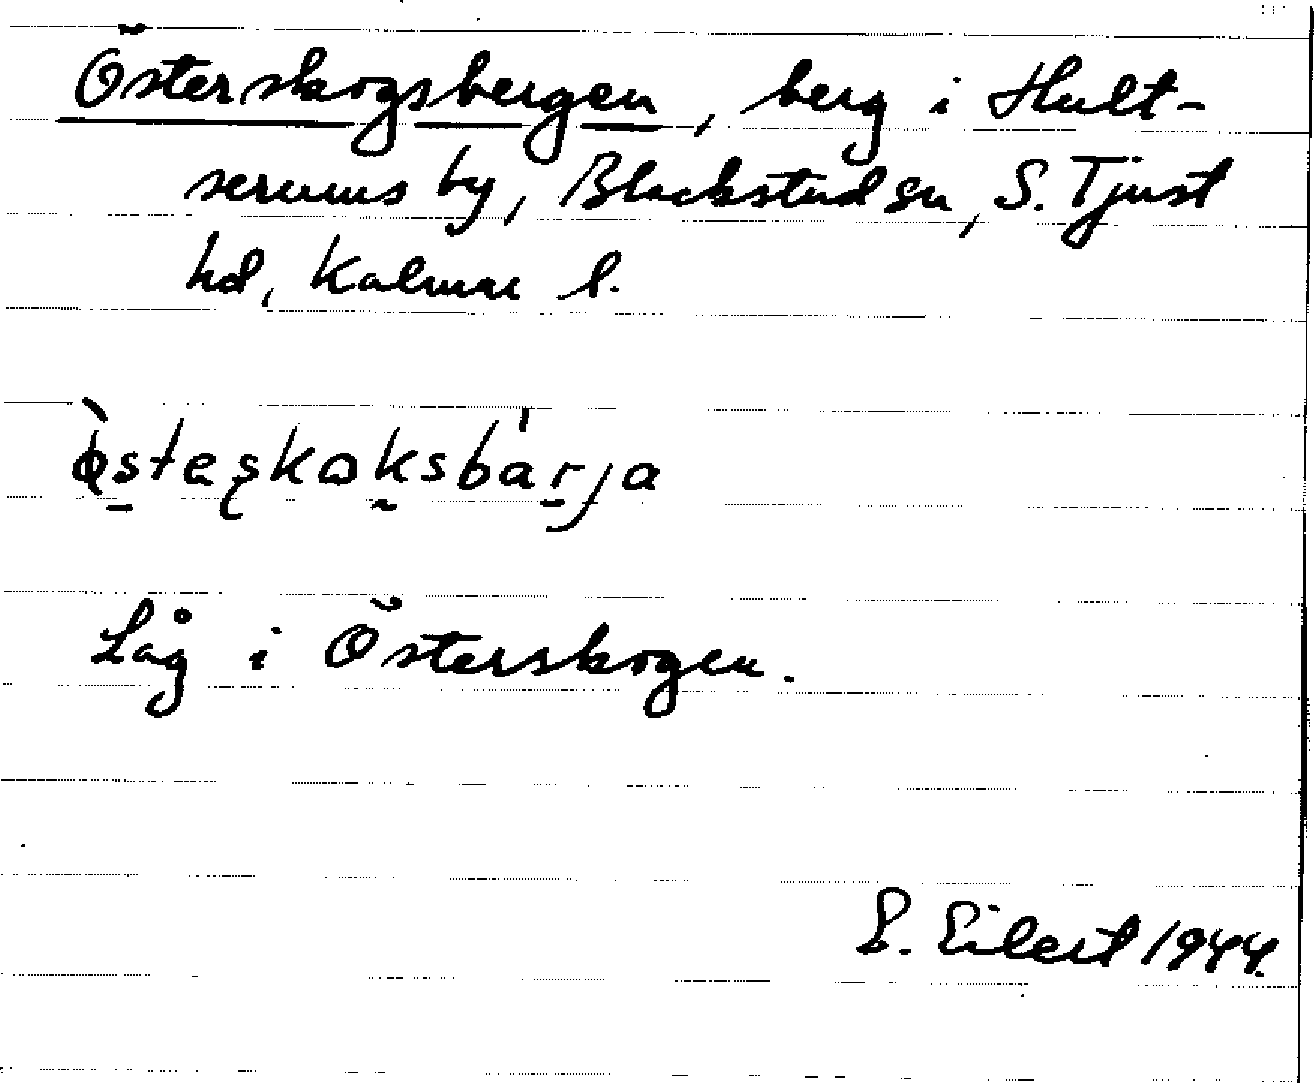 Österskogsbergen, berg i Hult-
serums by, Blackstad sn, S. Tjust
hd, Kalmar l.
ò̱steşkok̰sbár̠ja
Låg i Österskogen.
S. Eilert 1944.